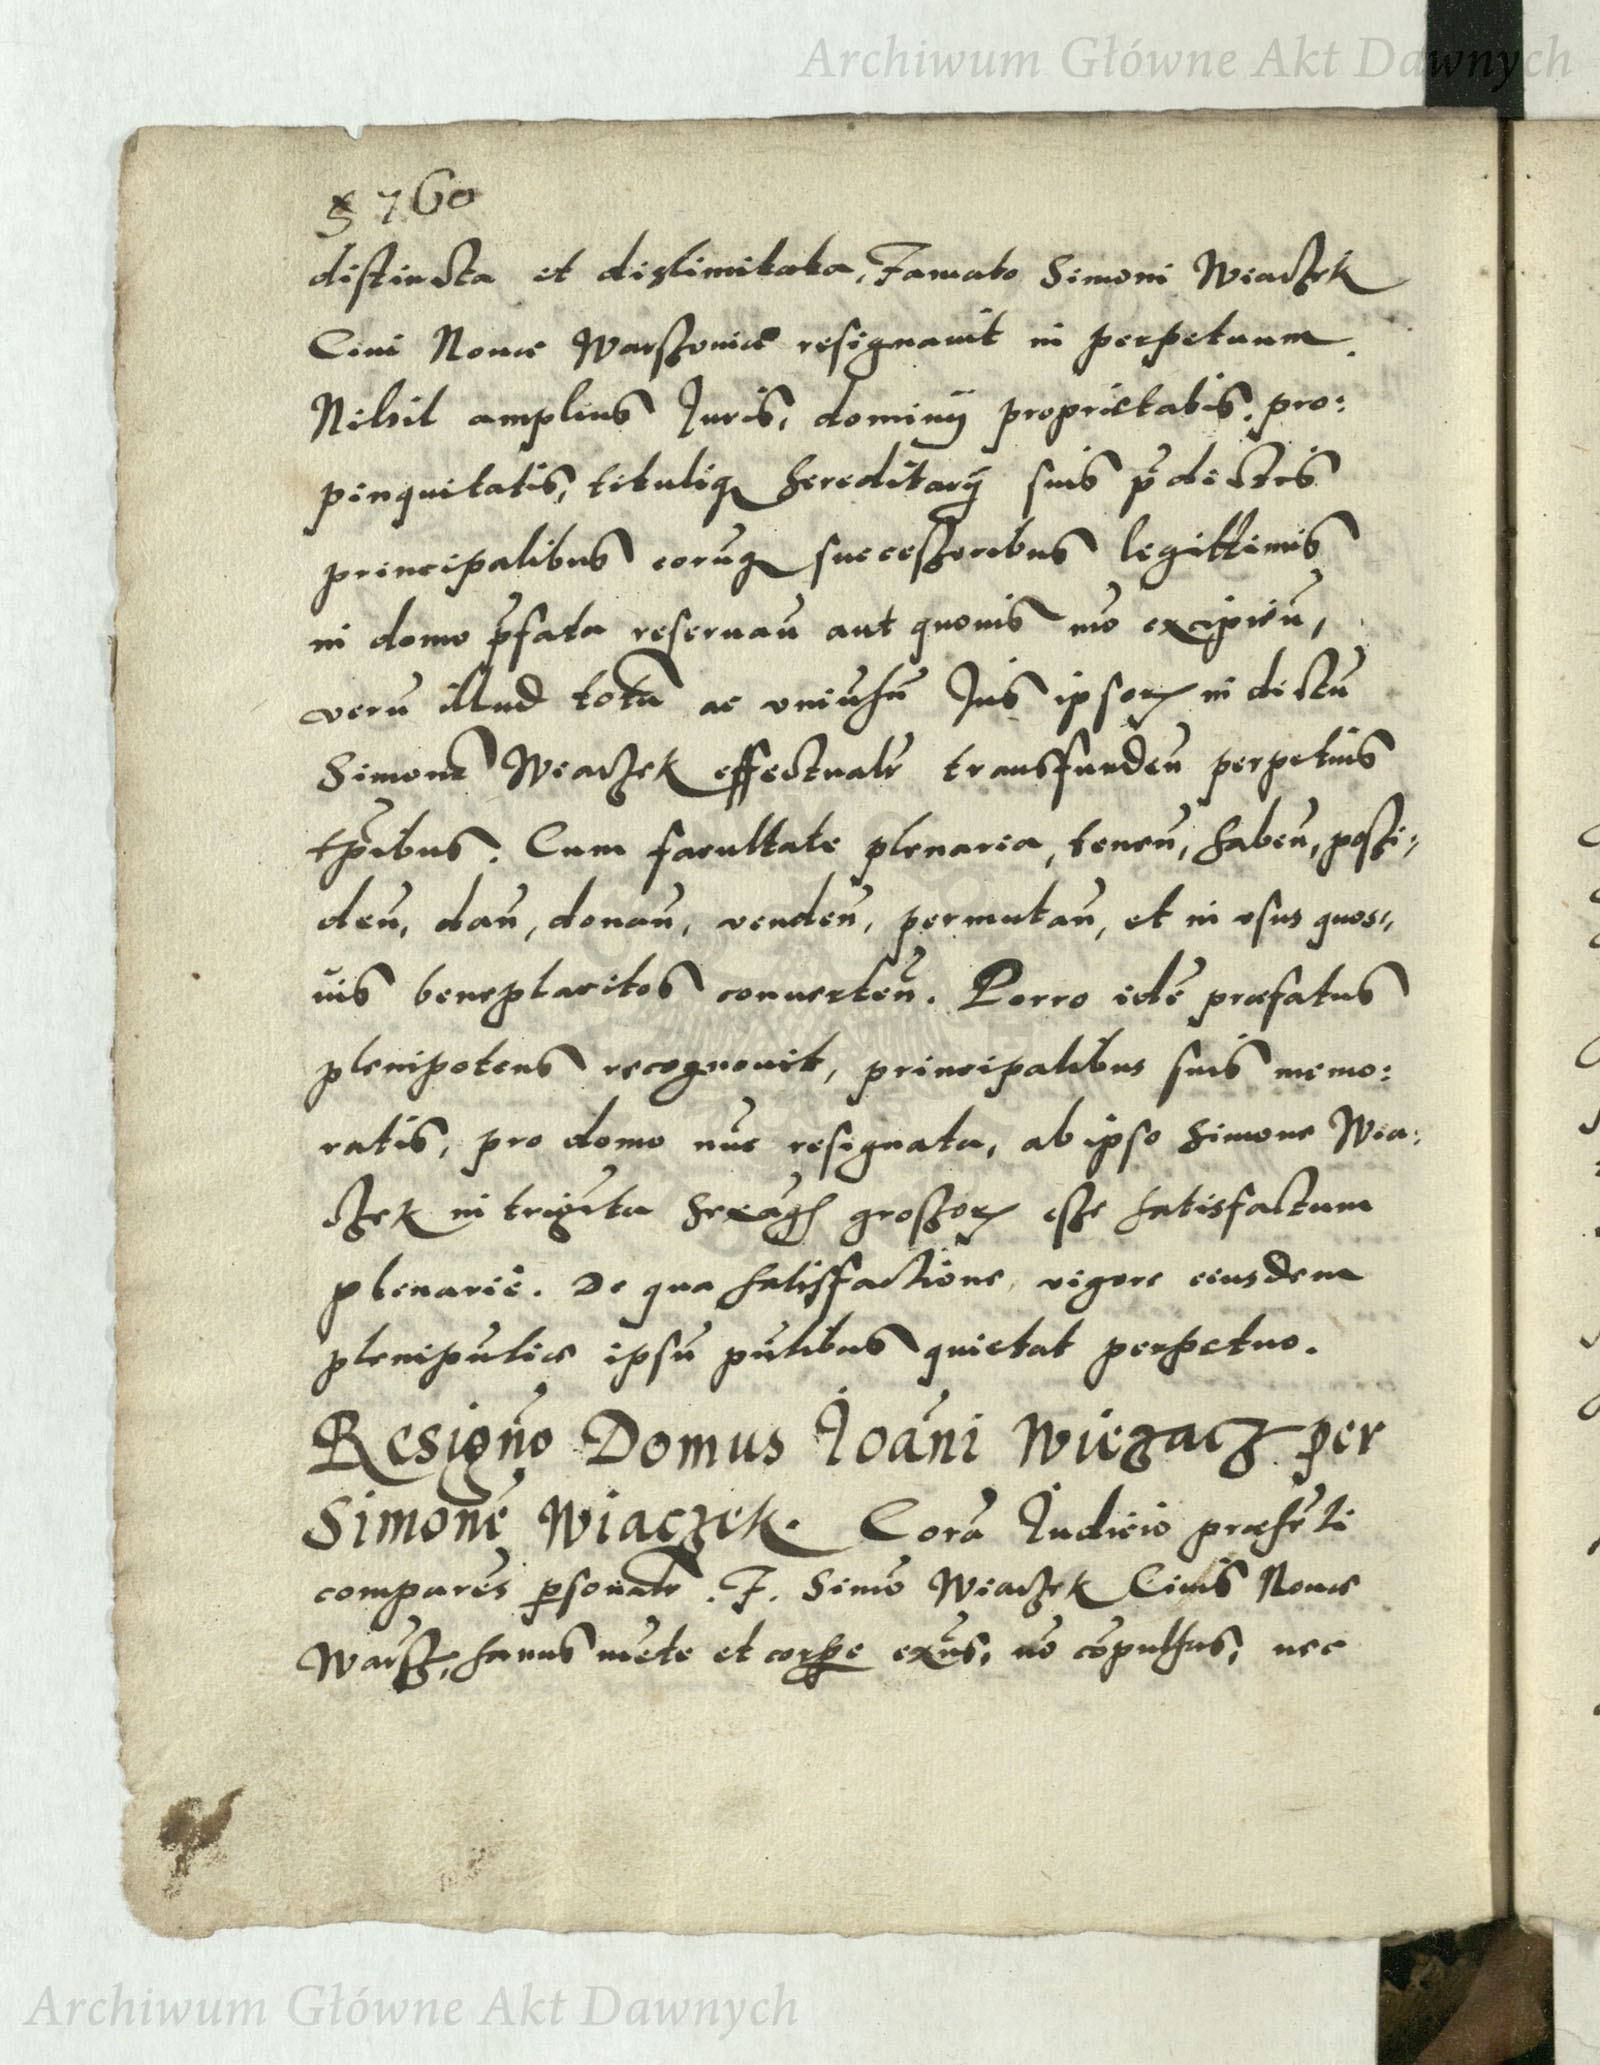 Archiwum Główne Akt Dawnych
760
distincta et dislimitata, Famato Simoni Wiaczek
Ciui Nouæ Warszouiæ resignauit in perpetuum
Nihil amplius Juris, dominij proprietatis, pro:
pinquitatis, tituliq hereditarij suis p̄dictis
principalibus eorūq successoribus legittimis
in domo p̄fata reseruan̄ aut quouis mō excipien̄,
verū illud totū ac vniūsū Jus ipsorꝝ in dictū
Simonē Wiaczek effectualr̄ transfunden̄ perpetuis
tp̄ribus. Cum facultate plenaria, tenen̄, haben̄, possi:
den̄, dan̄, donan̄, venden̄, permutan̄, et in vsus quos:
uis beneplacitos conuerten̄. Porro idē præfatus
plenipotens recognouit, principalibus suis memo:
ratis, pro domo nūc resignata, ab ipso Simone Wia:
czek in trigīta sexag grossorꝝ esse satisfactum
plenariè. De qua satisfactione, vigore eiusdem
plenipūtiæ ipsū pn̄tibus quietat perpetuo.
Resignō Domus Joānni Wiegacz per
Simonē Wiaczek. Corā Judicio præsēti
comparēs p̱sonalr̄. F. Simō Wiaczek Ciuis Nouæ
Warsz, sanus mēte et corp̱e exn̄s, nō cōpulsus, nec
Archiwum Główne Akt Dawnych